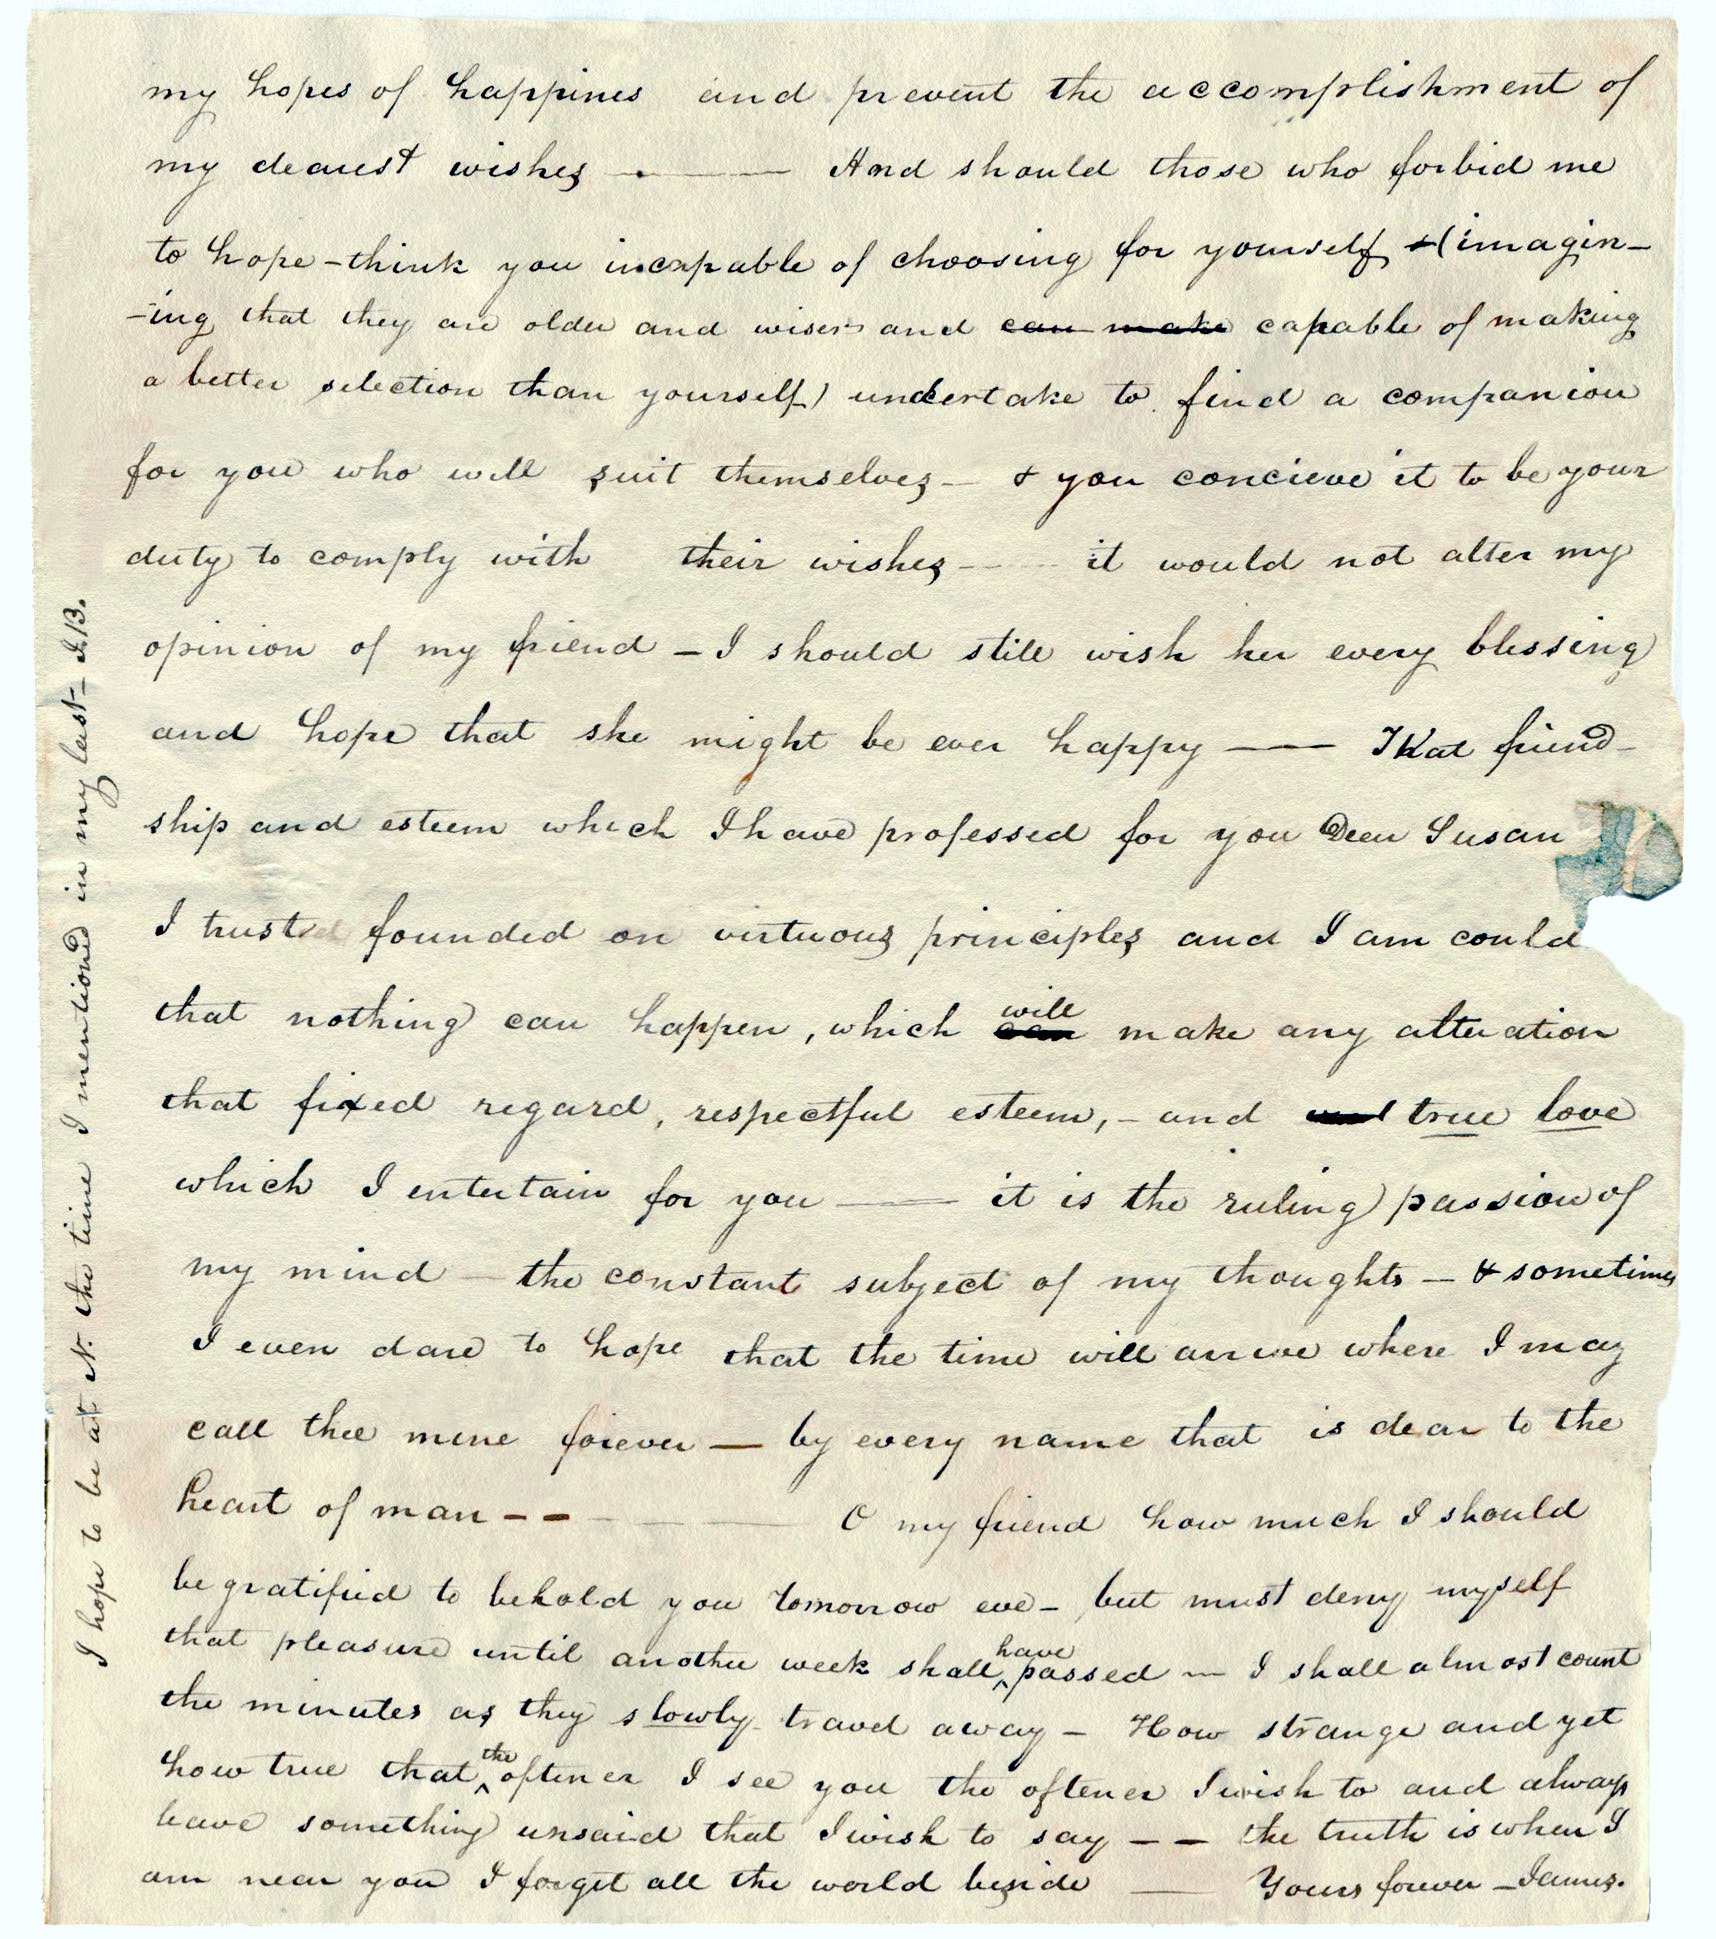 my hopes of happines and prevent the accomplishment of
my dearest wishes — And should those who forbid me
to hope - think you incapable of choosing for yourself (imagin-
-ing that they are older and wiser and can make capable of making
a better selection than yourself) undertake to find a companion
for you who will suit themselves — & you concieve it to be your
duty to comply with their wishes — it would not alter my
opinion of my friend — I should still wish her every blessing
and hope that she might be ever happy — That friend-
ship and esteem which I have professed for you Dear Susan
I trust founded on virtuous principles and I am could
that nothing can happen, which will can make any alteration
that fixed regard, respectful esteem, - and true love
which I entertain for you — it is the ruling passion of
my mind — the constant subject of my thoughts — & sometimes
I even dare to hope that the time will arrive where I may
call thee mine forever — by every name that is dear to the
heart of man — — O my friend how much I should
be gratified to behold you tomorrow eve - but must deny myself
that pleasure until another week shall have passed — I shall almost count
the minutes as they slowly travel away — How strange and yet
how true that the oftener I see you the oftener I wish to and always
leave something unsaid that I wish to say — — the truth is when I
am near you I forget all the world beside — Yours forever — James.
I hope to be at N. the time I mentioned in my last — J.B.